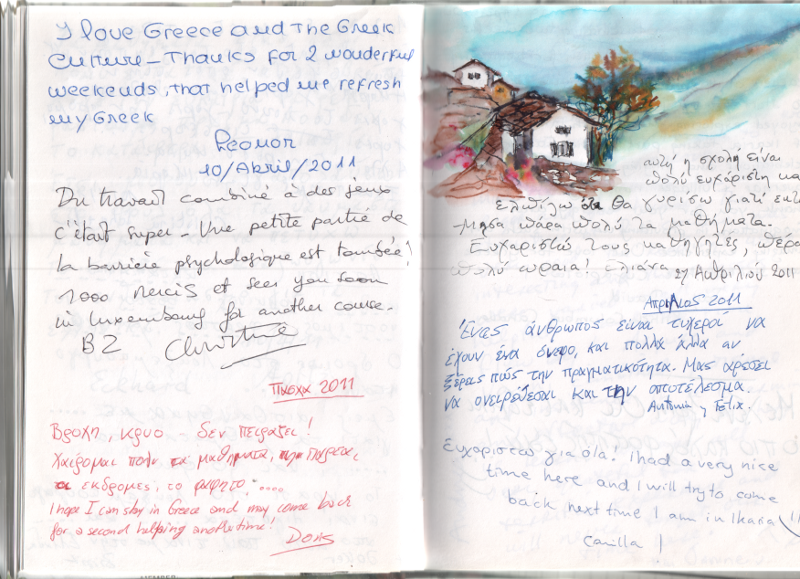 I love Greece and the Greek
Culture – Thanks for 2 wonderful
weekends, that helped me refresh
my Greek
10/Abril/2011
Du travail combiné à des jeux
c'était super – Une petite partie de
la barrière psychologique est tombée!
1000 Mercis et seee you soon
in Luxembourg for another course.
B2 Christine
Πάσχα 2011
Βροχη, κρυο δεν πειραζει!
Χαίρομαι πολυ τα μαθηματα,
εκδρομες, το φαγητο.....
I hope I can stay in Greece and may come back
for a second helping another time!
Doris
αυτή η σχολή είναι
πολύ ευχάριστη και
Ελπίζω ότι θα γυρίσω γιατί εκτί
-μησα πάρα πολύ τα μαθήματα.
Ευχαριστώ τους καθηγητές, πέρα
πολύ ωραια! ελιάνα 27 Απριλιού 2011
Απριλιος 2011
Ένας άνθρωπος είναι τυχεροί να
έχουν ένα όνειρο, και πολλά άλλα αν
ξέρεις πώς την πραγματικότητα. Μας αρέσει
να ονειρεύεσαι και την αποτέλεσμα.
Antonia y Felix.
Ευχαριστω για ολα! I had a very nice
time here and I will try to come
back next time I am in Ikaria
Camilla